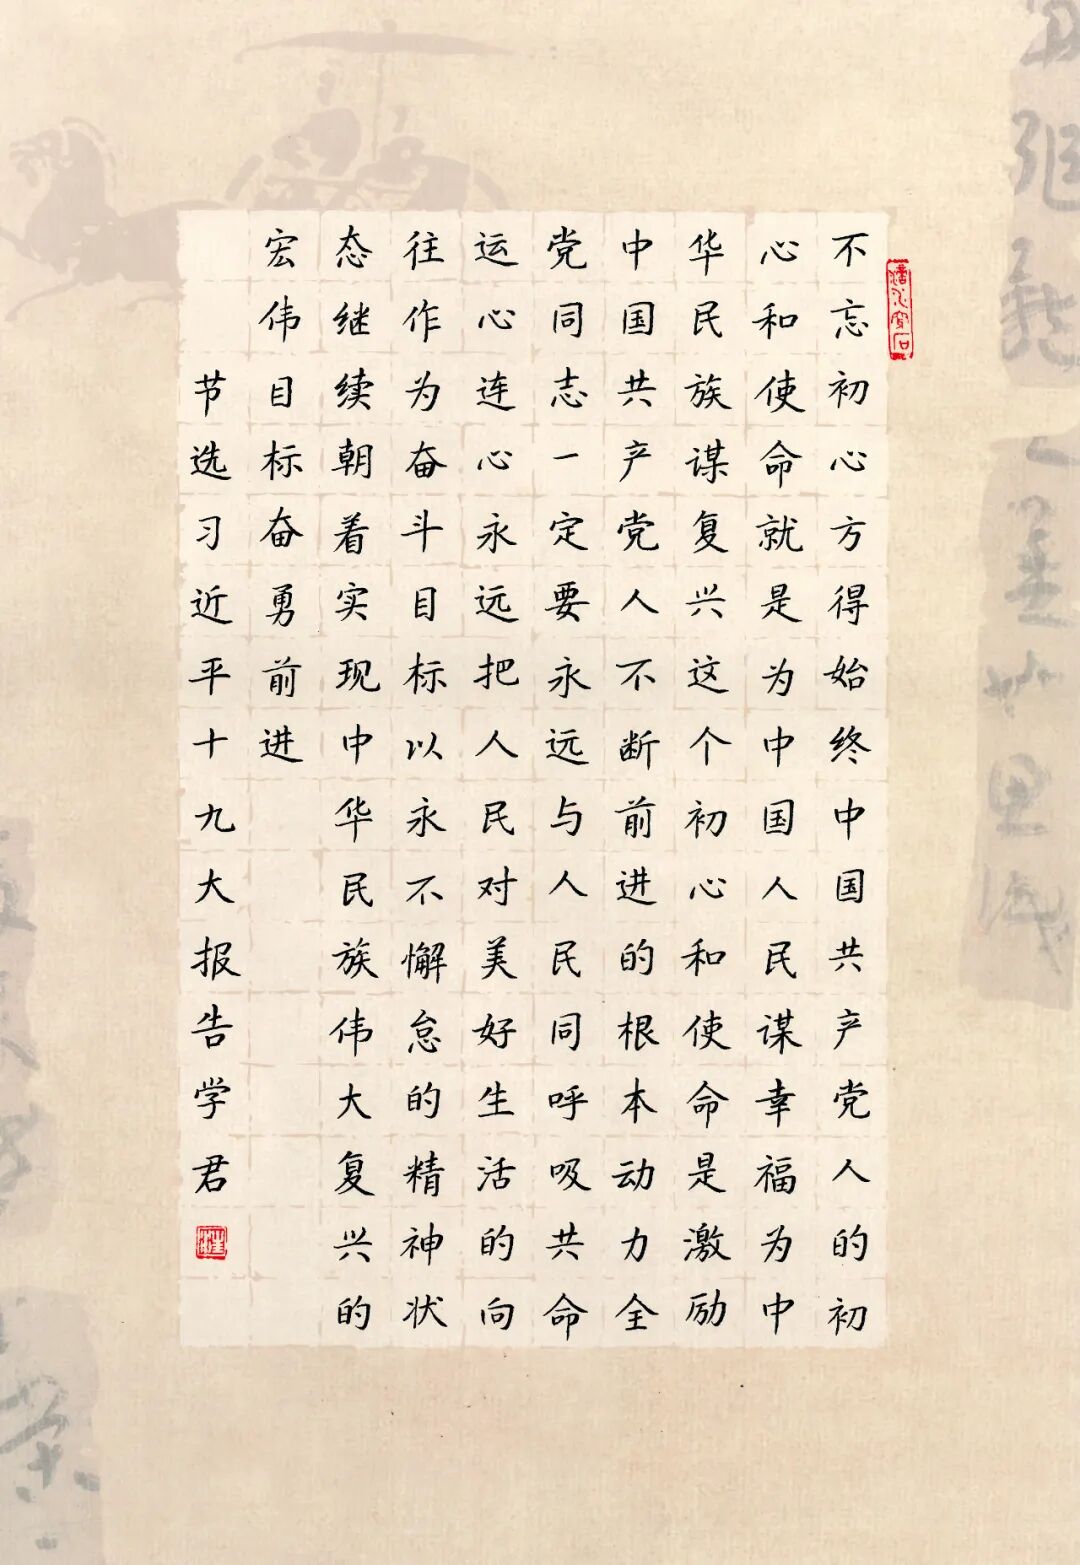 不忘初心方得始终中国共产党人的初
心和使命就是为中国人民谋幸福为中
华民族谋复兴这个初心和使命是激励
中国共产党人不断前进的根本动力全
党同志一定要永远与人民同呼吸共命
运心连心永远把人民对美好生活的向
往作为奋斗目标以永不懈怠的精神状
态继续朝着实现中华民族伟大复兴的
宏伟目标奋勇前进
节选习近平十九大报告学君